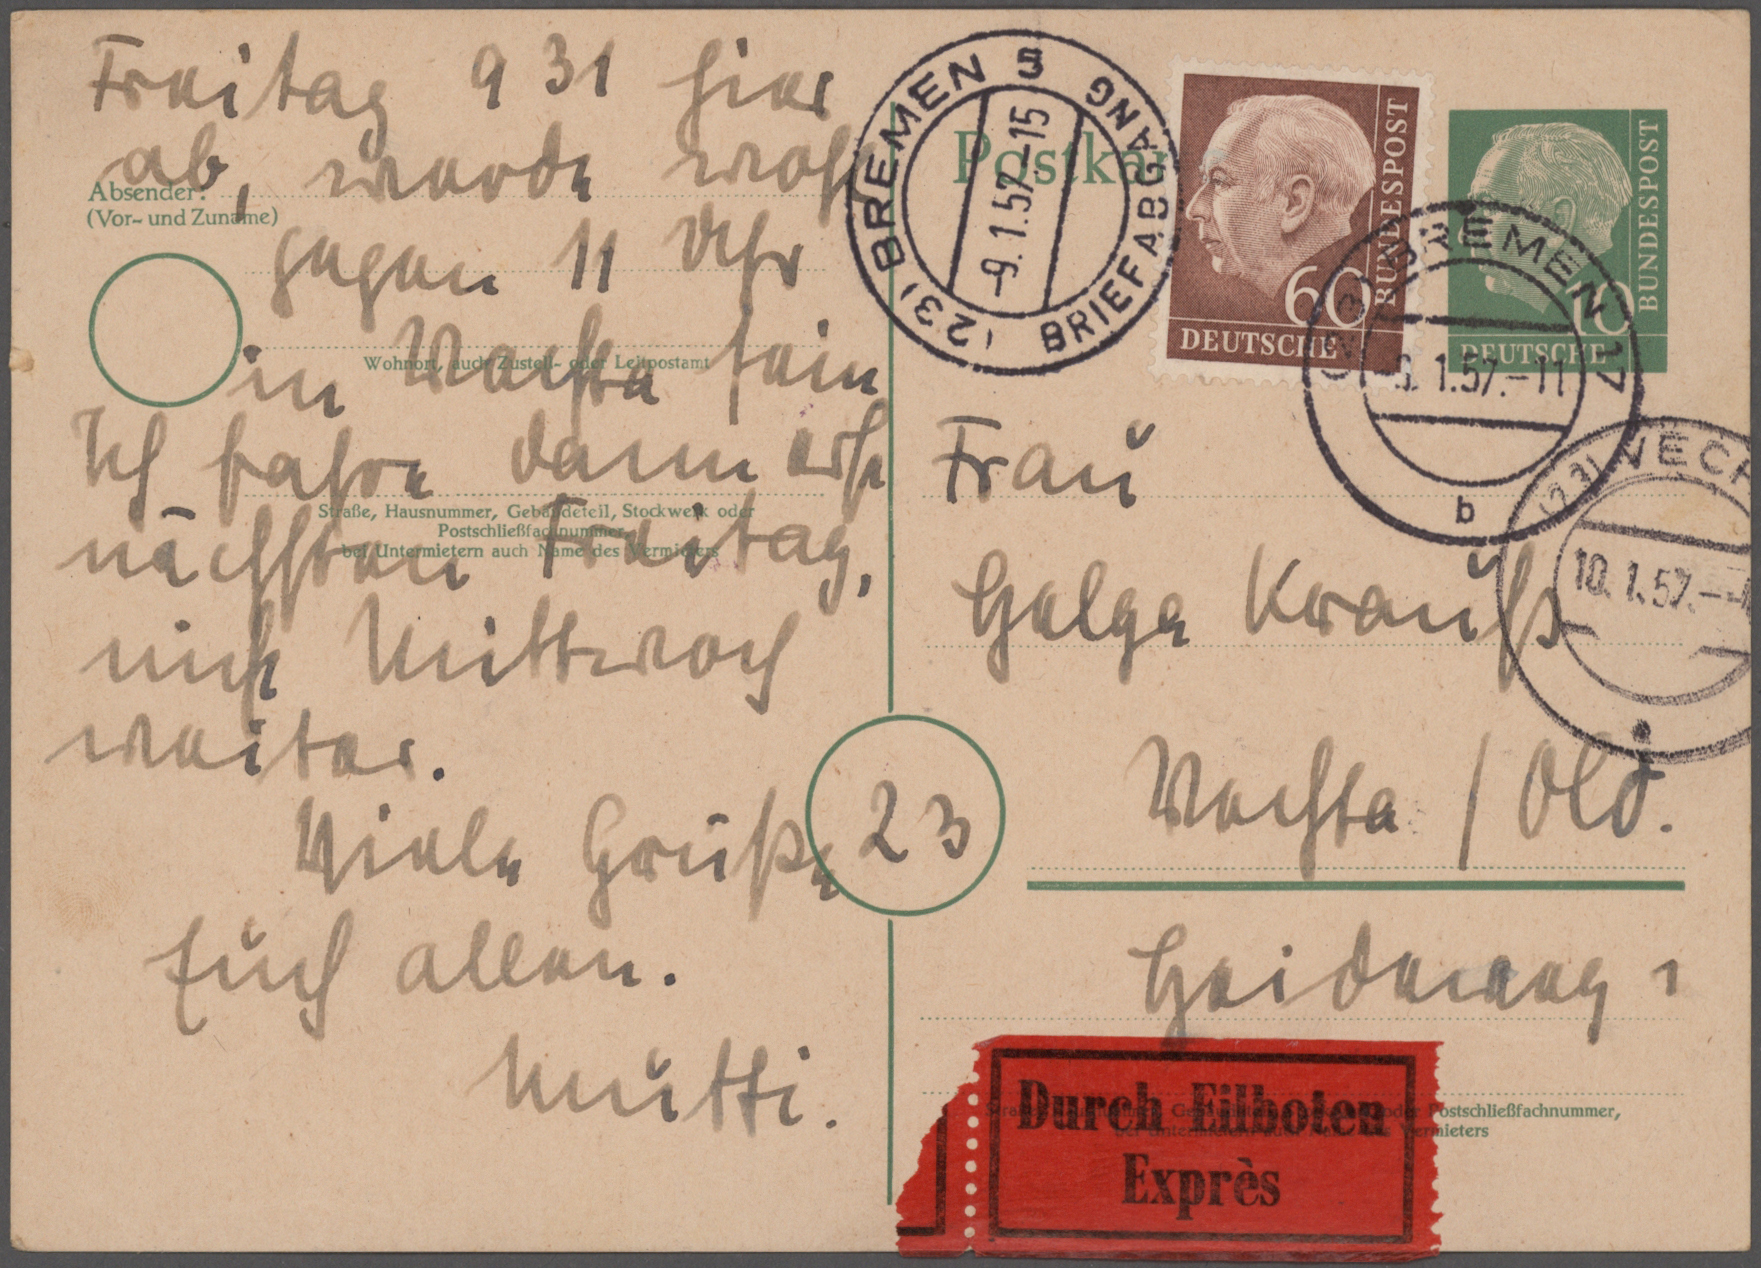 Freitag 9 31 hier
ab, werde wohl
gegen 11 Uhr
in Vechta sein
Ich fahre dann erst
nächsten Freitag,
nicht Mittwoch
weiter.
Viele Grüße
Euch allen.
Mutti.
Absender:
(Vor- und Zuname)
Wohnort, auch Zustell- oder Leitpostamt
Straße, Hausnummer, Gebäudeteil, Stockwerk oder
Postschließfachnummer
bei Untermietern auch Name des Vermieters
23
Postkar
(23) BREMEN 5
BRIEFABGANG
-9.1.57.-15
60
DEUTSCHE
BUNDESPOST
10
DEUTSCHE
BUNDESPOST
(23) BREMEN 17
1.57.-11
b
(23) VECH
10.1.57.-
Frau
Helga Krauß
Vechta / Old.
Heideweg 1
Postschließfachnummer,
bei Untermietern auch Name des Vermieters
Durch Eilboten
Exprès